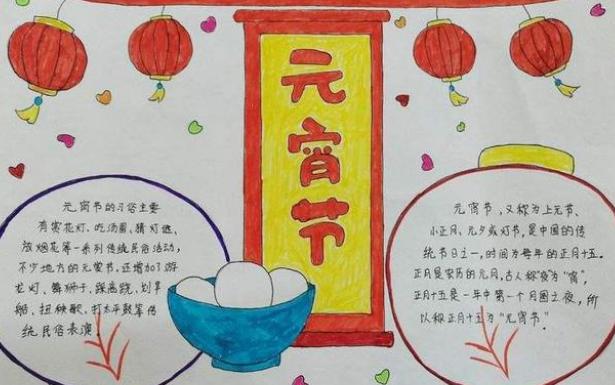 元宵节
元宵节的习俗主要
有赏花灯、吃汤圆、猜灯谜、
放烟花等一系列传统民俗活动,
不少地方的元宵节,还增加了游
龙灯、舞狮子、踩高跷、划旱
船、扭秧歌、打太平鼓等传
统民俗表演
元宵节,又称为上元节、
小正月、元夕或灯节,是中国的传
统节日之一,时间为每年的正月十五。
正月是农历的元月,古人称“夜”为“宵”,
正月十五是一年中第一个月圆之夜,所
以称正月十五为“元宵节”。